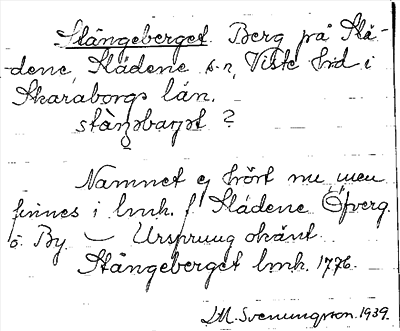 Stängeberget. Berg på Slä-
dene, Slädene s-n, Viste hrd i
Skaraborgs län.
?
Namnet ej hört nu men
finnes i lmk. f. Slädene Öfverg.
o. By. — Ursprung okänt.
Stängeberget lmk. 1776.
M. Svenungsson. 1939.